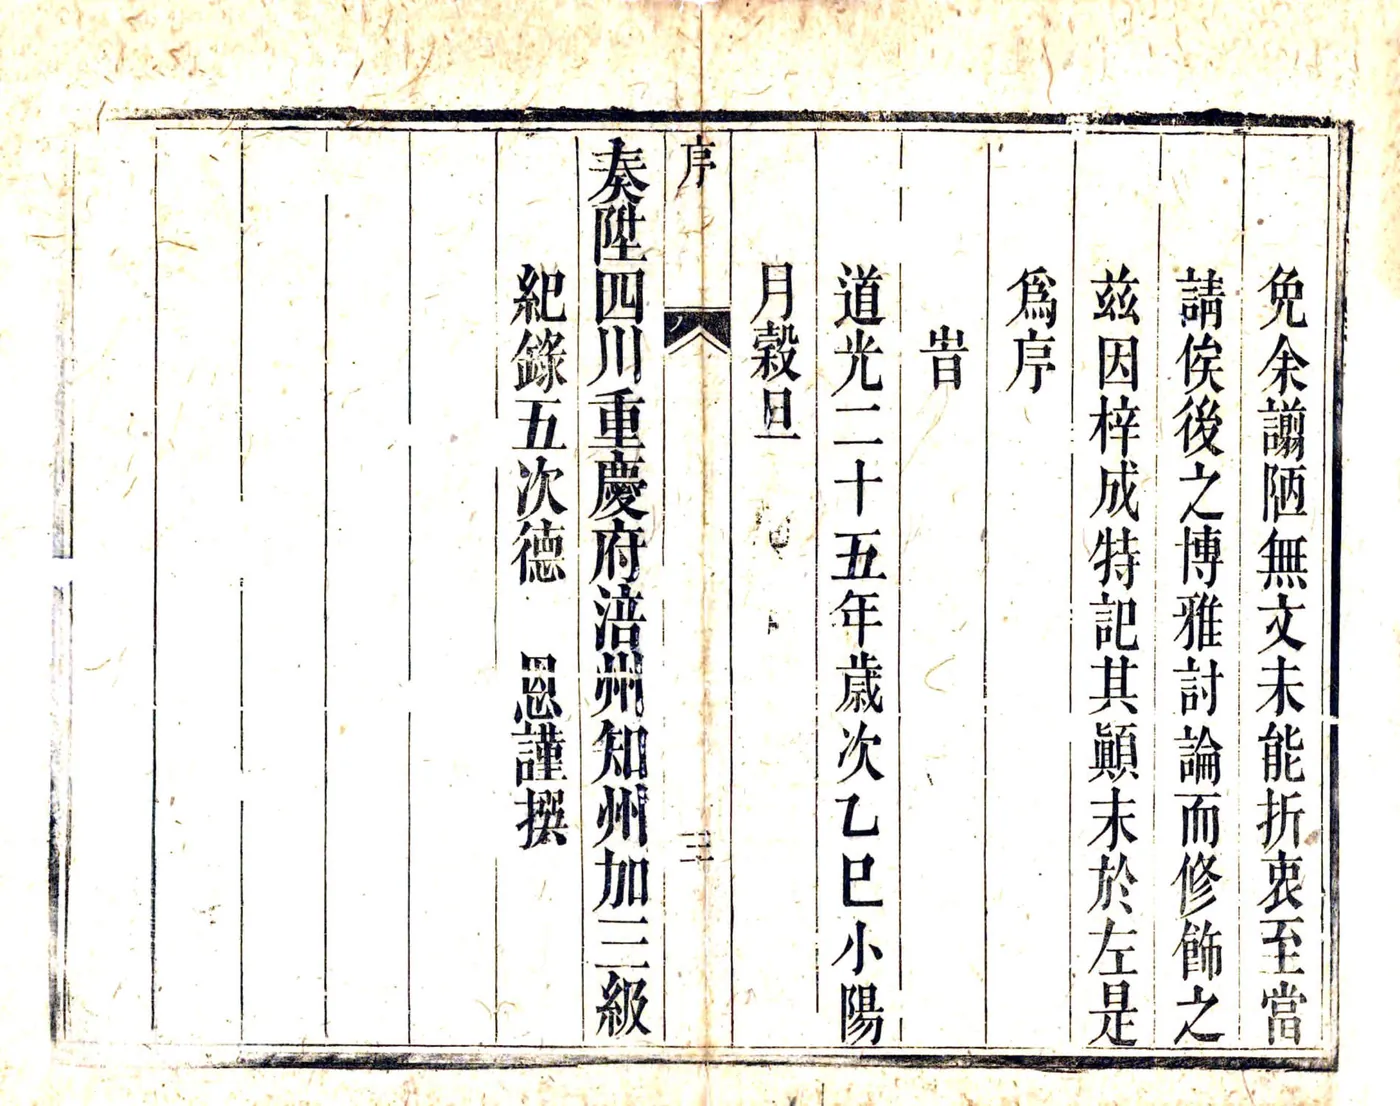 免余謭陋無文未能折衷至當
請俟後之博雅討論而修飾之
茲因梓成特記其顚末於左是
爲序
旹
道光二十五年歲次乙巳小陽
月穀旦
序
三
奏陞四川重慶府涪州知州加三級
紀錄五次德　恩謹撰